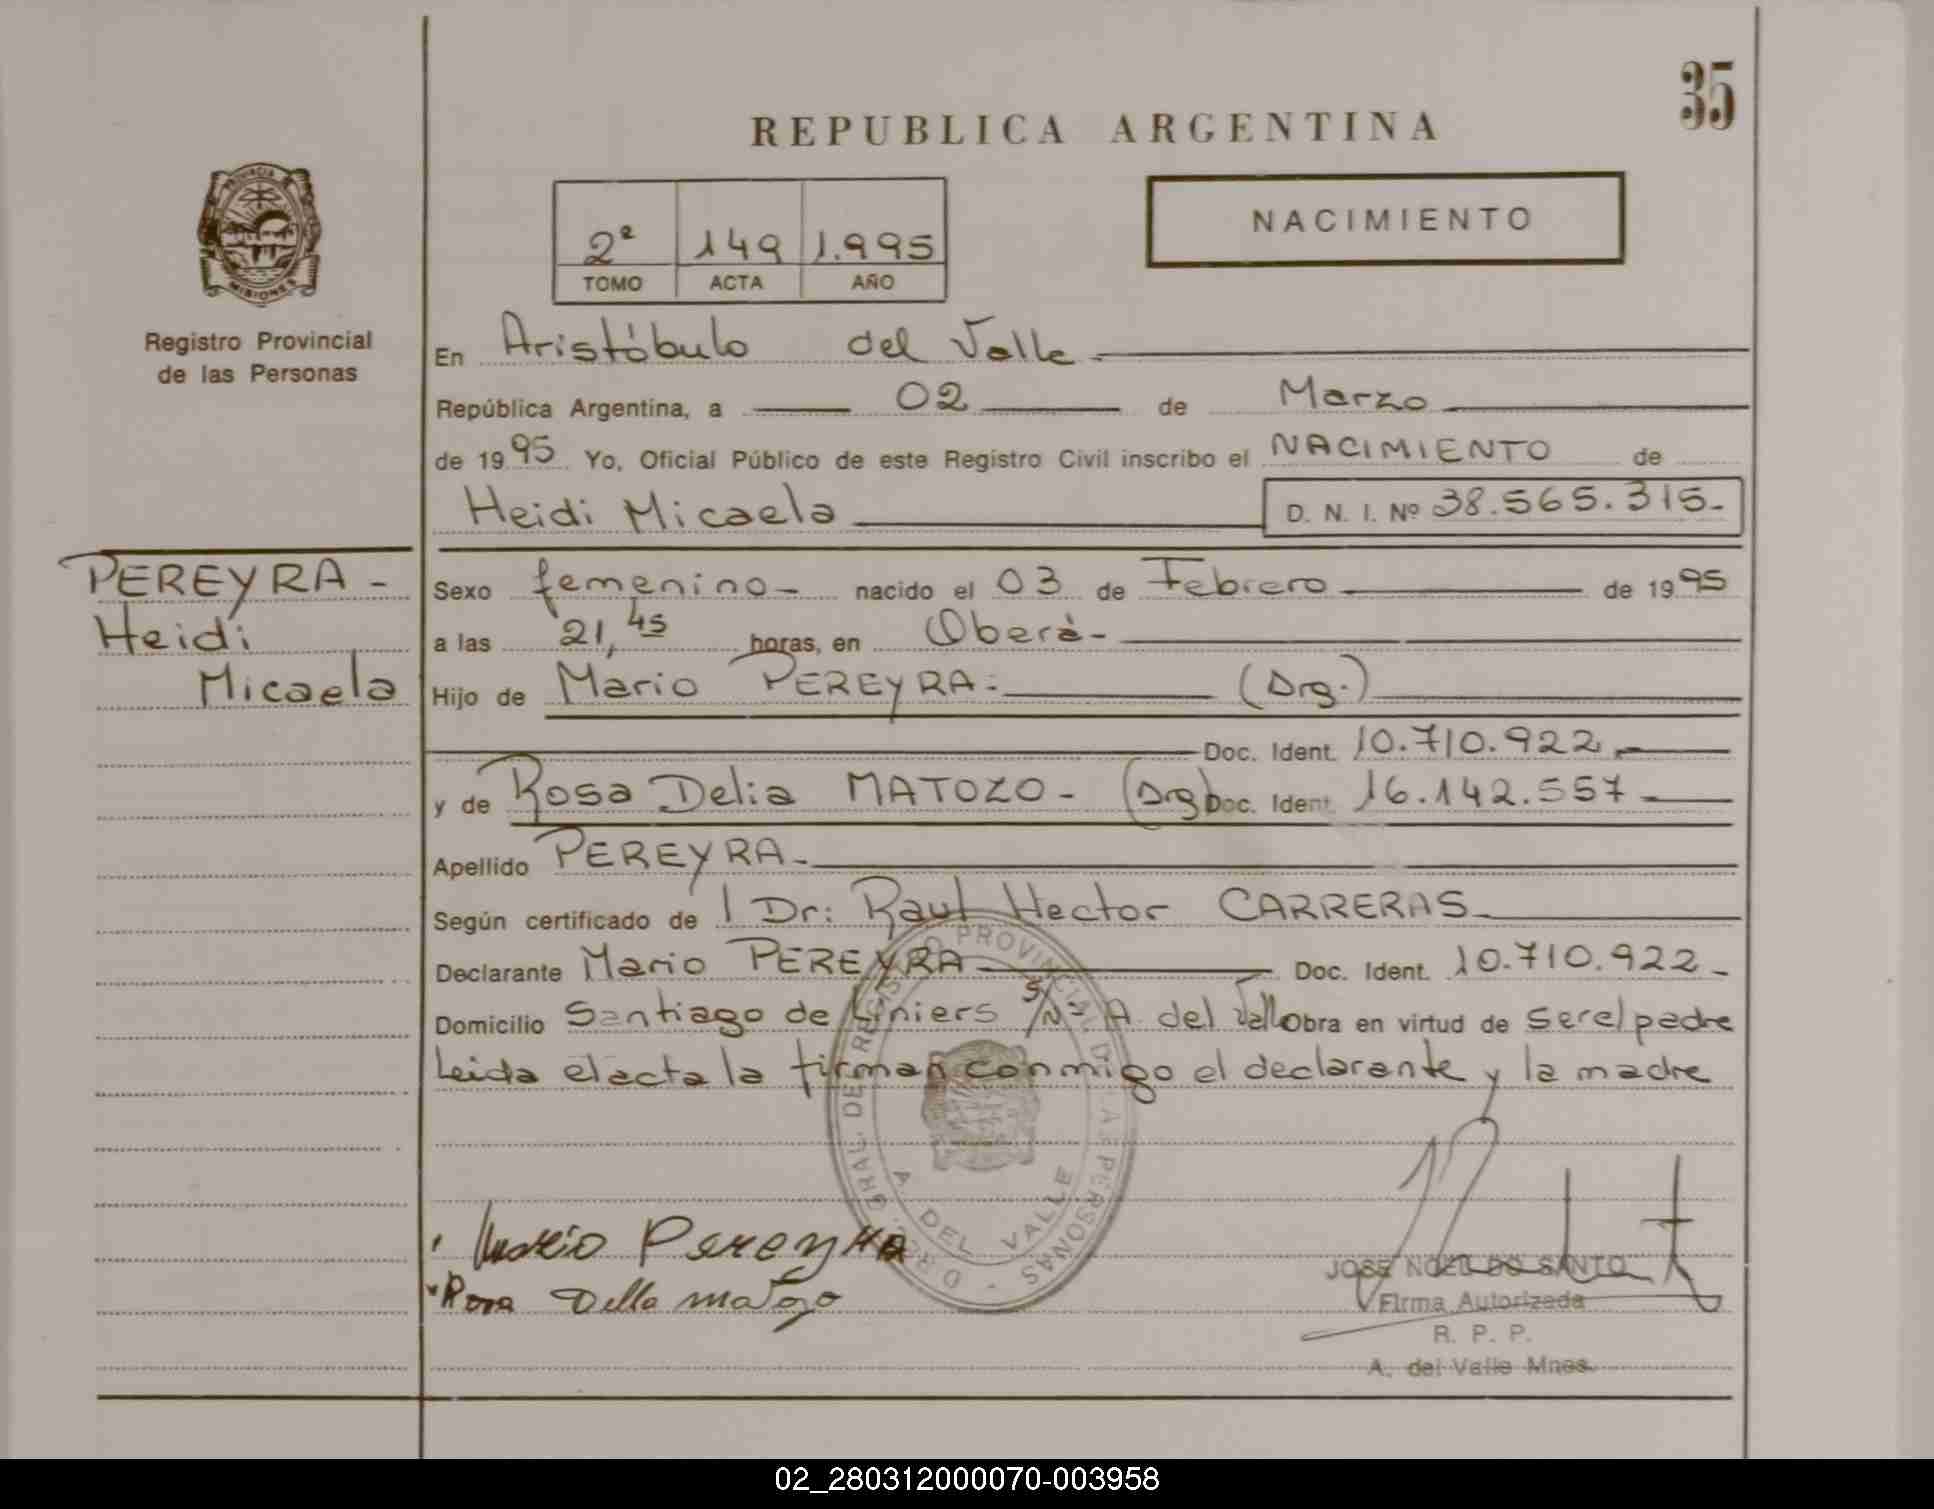 35
REPUBLICA ARGENTINA
PROVINCIA DE
MISIONES
Registro Provincial
de las Personas
2ª 149 1.995
TOMO ACTA AÑO
NACIMIENTO
En Aristóbulo del Valle
República Argentina, a 02 de Marzo
de 1995 Yo, Oficial Público de este Registro Civil inscribo el NACIMIENTO de
Heidi Micaela D. N. I. Nº 38.565.315.-
PEREYRA -
Heidi
Micaela
Sexo femenino - nacido el 03 de Febrero de 1995
a las 21,45 horas, en Oberá -
Hijo de Mario PEREYRA.- (Arg.)
Doc. Ident. 10.710.922.-
y de Rosa Delia MATOZO - (Arg) Doc. Ident. 16.142.557 -
Apellido PEREYRA -
Según certificado de l Dr: Raul Hector CARRERAS -
Declarante Mario PEREYRA - Doc. Ident. 10.710.922 -
Domicilio Santiago de Liniers S/Nº A. del Valle Obra en virtud de ser el padre
Leida el acta la firman conmigo el declarante y la madre
DREC. GRAL. DE REGISTRO PROVINCIAL DE LAS PERSONAS -
A. DEL VALLE
Mario Pereyra
Rosa Delia Matozo
JOSE NOEL DO SANTO
Firma Autorizada
R. P. P.
A. del Valle Mnes.
02_280312000070-003958